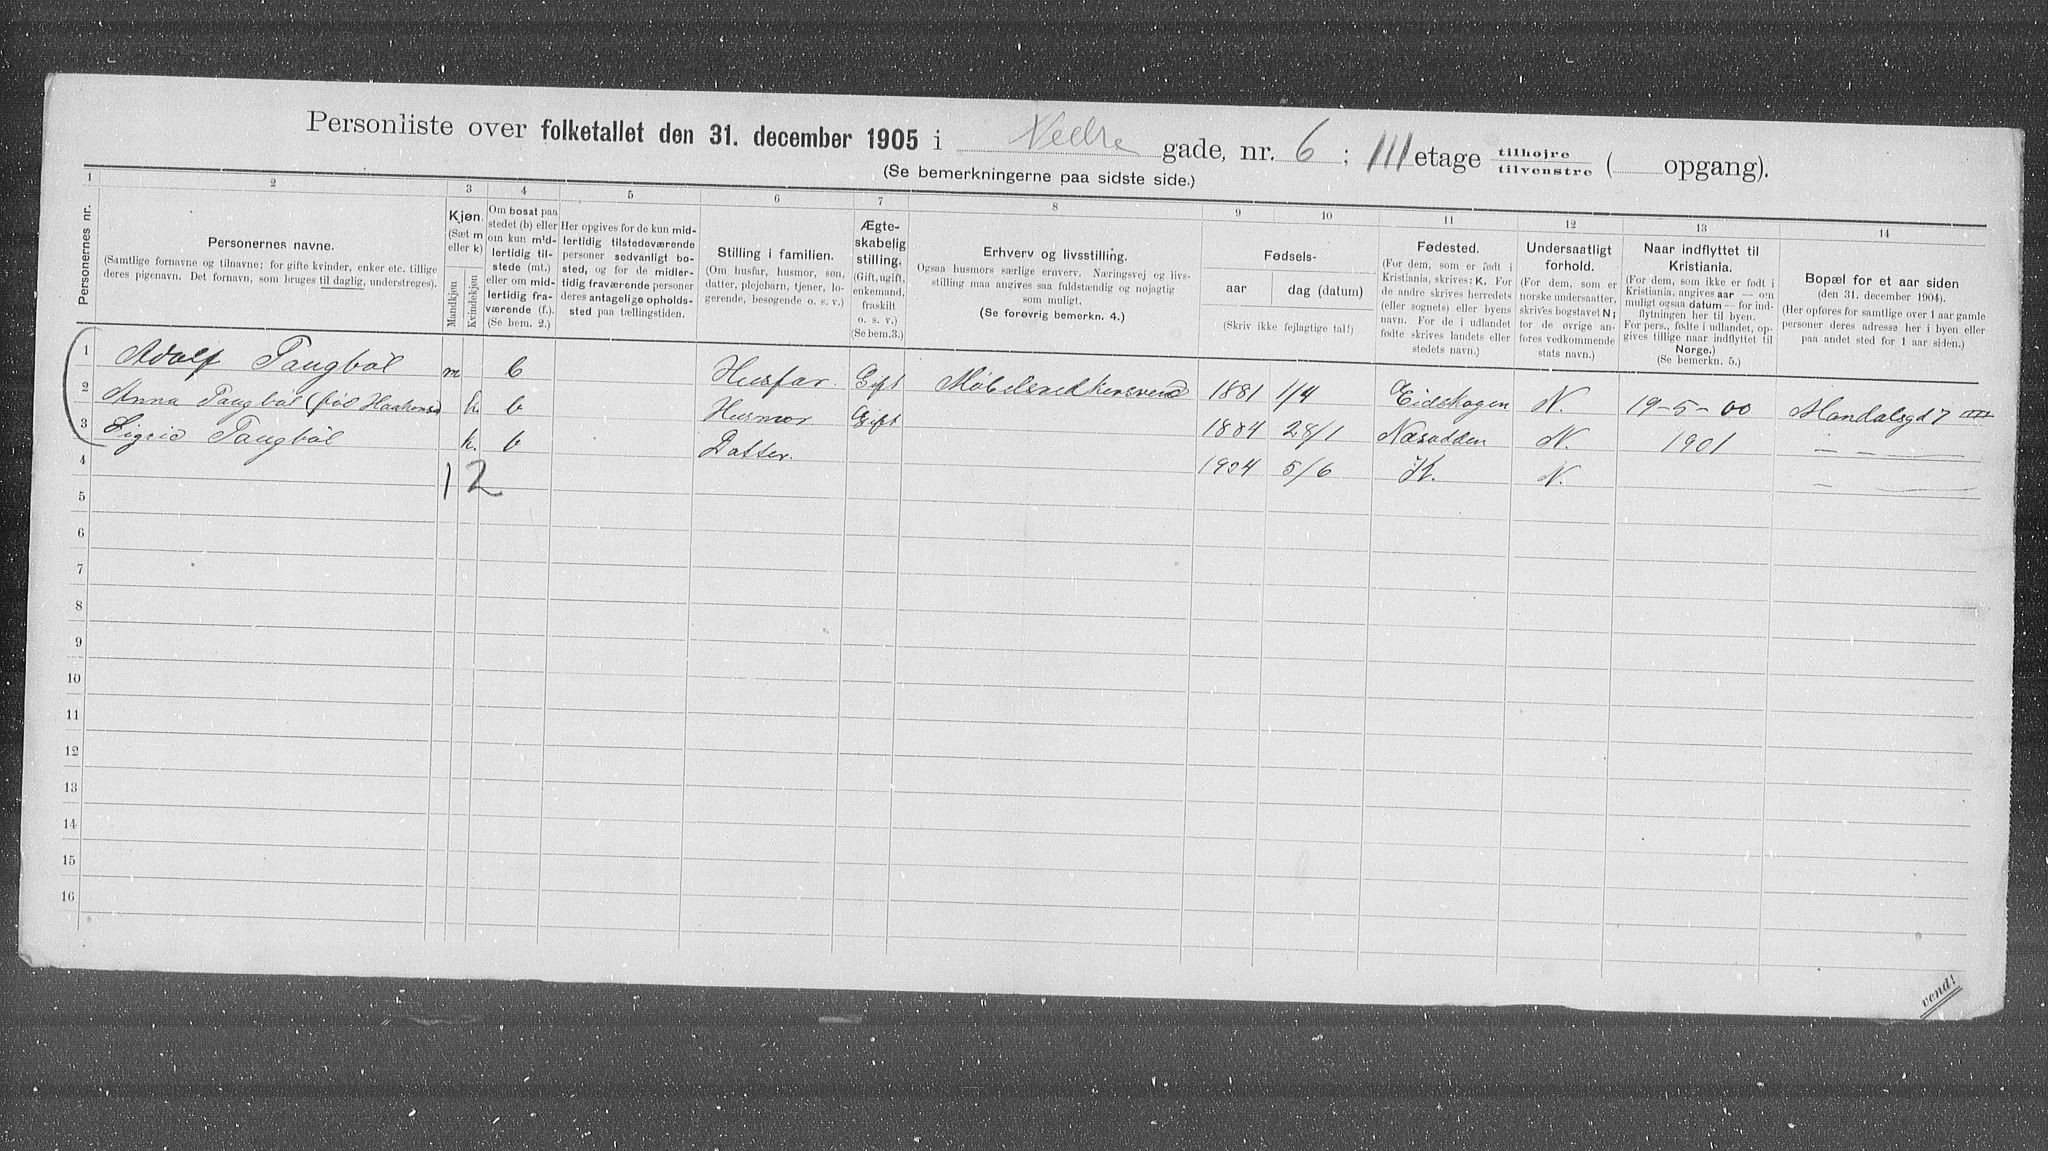 Personliste over folketallet den 31. december 1905 i Nedre gade, nr. 6 ; III etage tilhøjre / tilvenstre ( opgang).
(Se bemerkningerne paa sidste side.)
1 2 3 4 5 6 7 8 9 10 11 12 13 14
Personernes nr.
Personernes navne.
(Samtlige fornavne og tilnavne; for gifte kvinder, enker etc. tillige
deres pigenavn. Det fornavn, som bruges til daglig, understreges).
Kjøn.
(Sæt m
eller k)
Mandkjøn
Kvindekjøn
Om bosat paa
stedet (b) eller
om kun mid-
lertidig til-
stede (mt.)
eller om mid-
lertidig fra-
værende (f.).
(Se bem. 2.)
Her opgives for de kun mid-
lertidig tilstedeværende
personer sedvanlig bo-
sted, og for de midler-
tidig fraværende personer
deres antagelige opholds-
sted paa tællingstiden.
Stilling i familien.
(Om husfar, husmor, søn,
datter, plejebarn, tjener, lo-
gerende, besøgende o. s. v.)
Ægte-
skabelig
stilling.
(Gift, ugift,
enkemand,
fraskilt
o. s. v.)
(Se bem.3.)
Erhverv og livsstilling.
Ogsaa husmors særlige erhverv. Næringsvej og livs-
stilling maa angives saa fuldstændig og nøjagtig
som muligt.
(Se forøvrig bemerkn. 4.)
Fødsels-
aar
dag (datum)
(Skriv ikke fejlagtige tal!)
Fødested.
(For dem, som er født i
Kristiania, skrives: K. For
de andre skrives herredets
(eller sognets) eller byens
navn. For de i udlandet
fødte skrives landets eller
stedets navn.)
Undersaatligt
forhold.
(For dem, som er
norske undersaatter,
skrives bogstavet N;
for de øvrige an-
føres vedkommende
stats navn.)
Naar indflyttet til
Kristiania.
(For dem, som ikke er født i
Kristiania, angives aar — om
muligt ogsaa datum — for ind-
flytningen her til byen.
For pers., fødte i udlandet, op-
gives tillige naar indflyttet til
Norge.)
(Se bemerkn. 5.)
Bopæl for et aar siden
(den 31. december 1904).
(Her opføres for samtlige over 1 aar gamle
personer deres adresse her i byen eller
paa andet sted for 1 aar siden.)
1 Adolf Taugbøl m b Husfar. Gift Møbelsnedkersvend 1881 1/4 Eidskogen N. 19-5-00 Mandalsgd 7 III
2 Anna Taugbøl (føl Haakonsd k. b Husmor Gift 1884 28/1 Næsodden N. 1901 — — —
3 Sigrid Taugbøl k. b Datter. 1904 5/6 K. N. — —
4 1 2
5
6
7
8
9
10
11
12
13
14
15
16
vend!